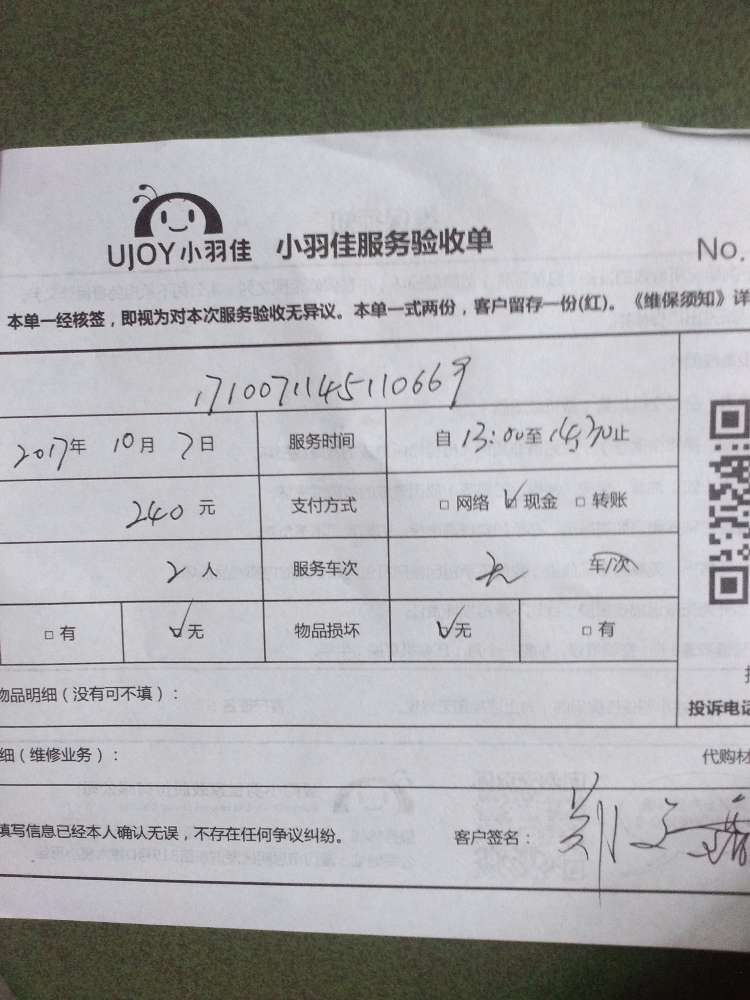 UJOY小羽佳 小羽佳服务验收单
No.
本单一经核签，即视为对本次服务验收无异议。本单一式两份，客户留存一份(红)。《维保须知》详
1710071145110669
2017年 10月 7日 服务时间 自 13:00至 14:30止
240 元 支付方式 □ 网络 ☑ 现金 □ 转账
2 人 服务车次 车/次
□ 有 ☑ 无 物品损坏 ☑ 无 □ 有
物品明细（没有可不填）：
投诉电话
细（维修业务）：
代购材
填写信息已经本人确认无误，不存在任何争议纠纷。 客户签名：郑